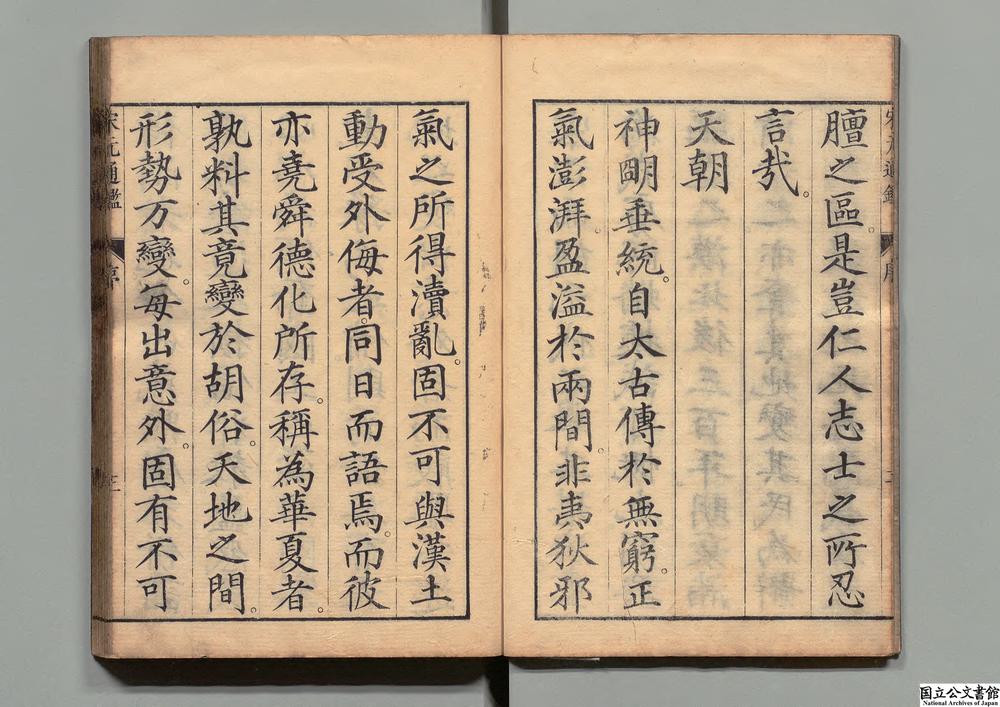 膻之區。是豈仁人志士之所忍
言哉。
天朝
神明垂統。自太古傳於無窮。正
氣澎湃。盈溢於兩間。非夷狄邪
氣之所得瀆亂。固不可與漢土
動受外侮者。同日而語焉。而彼
亦堯舜德化所存。稱為華夏者。
孰料其竟變於胡俗。天地之間。
形勢万變。每出意外。固有不可
宋元通鑑
序
国立公文書館
National Archives of Japan